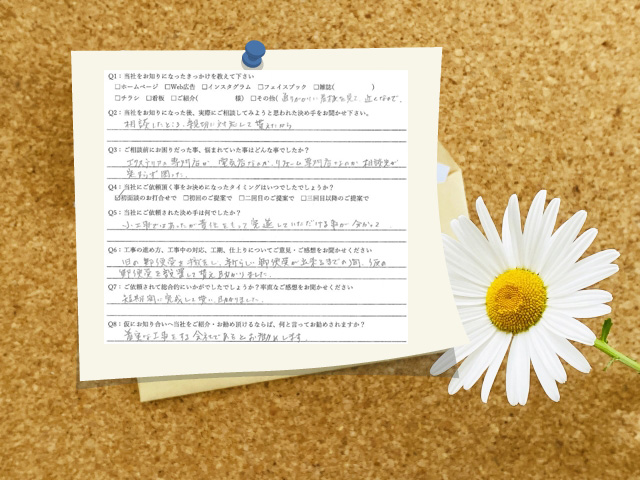 Q1：当社をお知りになったきっかけを教えて下さい
□ホームページ □Web広告 □インスタグラム □フェイスブック □雑誌( )
□チラシ □看板 □ご紹介( 様) □その他( 通りがかりに看板を見て、近くなので。
Q2：当社をお知りになった後、実際にご相談してみようと思われた決め手をお聞かせ下さい。
相談したところ、親切に対応して貰えたから
Q3：ご相談前にお困りだった事、悩まれていた事はどんな事でしたか？
エクステリアの専門店か、電気店なのか、リフォーム専門店なのか 相談先が
決まらず困った。
Q4：当社にご依頼頂く事をお決めになったタイミングはいつでしたでしょうか？
☑初面談のお打合せで □初回のご提案で □二回目のご提案で □三回目以降のご提案で
Q5：当社にご依頼された決め手は何でしたか？
小工事ではあったが責任をもって完遂していただける事が分かって
Q6：工事の進め方、工事中の対応、工期、仕上りについてご意見・ご感想をお聞かせください
旧の郵便受を撤去し、新らしい郵便受が出来るまでの間、仮の
郵便受を設置して貰え助かりました。
Q7：ご依頼されて総合的にいかがでしたでしょうか？率直なご感想をお聞かせください
短期間に完成して貰い、助かりました。
Q8：仮にお知り合いへ当社をご紹介・お勧め頂けるならば、何と言ってお勧めされますか？
着実な工事をする会社であるとお勧めします。